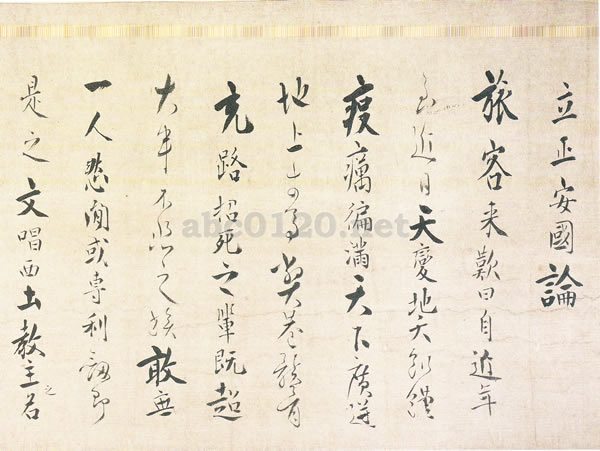 立正安國論
旅客来歎曰自近年
至近日天變地夭飢饉
疫癘徧滿天下廣迸
地上牛馬斃巷骸骨
充路招死之輩既超
大半不悲之族敢無
一人然間或專利劔即
是之文唱西土教主之名
abc0120.net